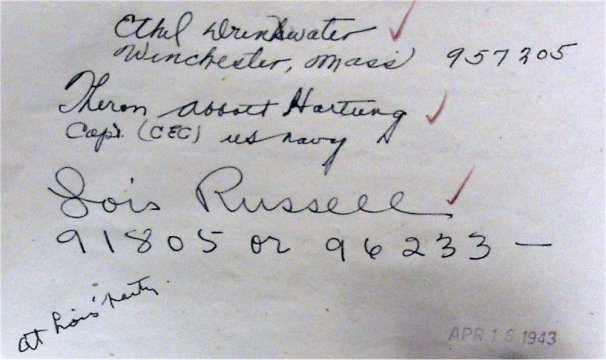 Ethel Drinkwater
Winchester, Mass 957205
Theron Abbott Hartung
Capt. (CEC) US Navy
Lois Russell
91805 or 96233 —
At Lois' Party.
APR 16 1943